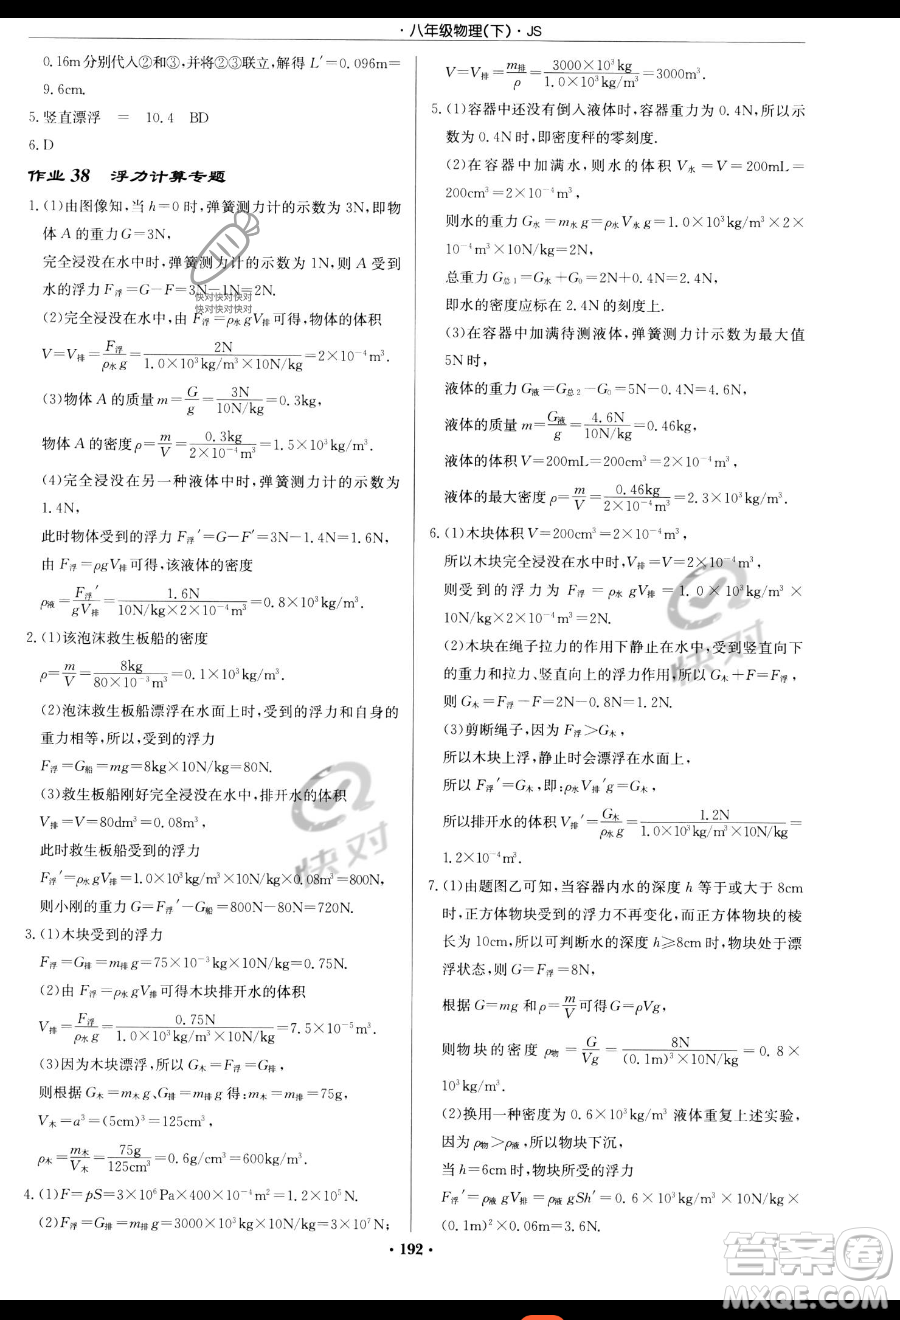 ·八年级物理(下)·JS
0.16m分别代入②和③,并将②③联立,解得 L′=0.096m=
9.6cm.
5.竖直漂浮 = 10.4 BD
6.D
作业 38 浮力计算专题
1.(1)由图像知,当 h=0 时,弹簧测力计的示数为 3N,即物
体 A 的重力G=3N,
完全浸没在水中时,弹簧测力计的示数为 1N,则 A 受到
水的浮力 F浮=G-F=3N-1N=2N.
快对快对快对
快对快对快对
(2)完全浸没在水中,由 F浮=ρ水gV排可得,物体的体积
V=V排=F浮/ρ水g=2N/1.0×10³kg/m³×10N/kg=2×10⁻⁴m³.
(3)物体 A 的质量 m=G/g=3N/10N/kg=0.3kg,
物体 A 的密度 ρ=m/V=0.3kg/2×10⁻⁴m³=1.5×10³kg/m³.
(4)完全浸没在另一种液体中时,弹簧测力计的示数为
1.4N,
此时物体受到的浮力 F浮′=G-F′=3N-1.4N=1.6N,
由 F浮=ρgV排可得,该液体的密度
ρ液=F浮′/gV排=1.6N/10N/kg×2×10⁻⁴m³=0.8×10³kg/m³.
2.(1)该泡沫救生板船的密度
ρ=m/V=8kg/80×10⁻³m³=0.1×10³kg/m³.
(2)泡沫救生板船漂浮在水面上时,受到的浮力和自身的
重力相等,所以,受到的浮力
F浮=G船=mg=8kg×10N/kg=80N.
(3)救生板船刚好完全浸没在水中,排开水的体积
V排=V=80dm³=0.08m³,
此时救生板船受到的浮力
F浮′=ρ水gV排=1.0×10³kg/m³×10N/kg×0.08m³=800N,
则小刚的重力 G=F浮′-G船=800N-80N=720N.
3.(1)木块受到的浮力
F浮=G排=m排g=75×10⁻³kg×10N/kg=0.75N.
(2)由 F浮=ρ水gV排可得木块排开水的体积
V排=F浮/ρ水g=0.75N/1.0×10³kg/m³×10N/kg=7.5×10⁻⁵m³.
(3)因为木块漂浮,所以 G木=F浮=G排,
则根据 G木=m木g、G排=m排g得:m木=m排=75g,
V木=a³=(5cm)³=125cm³,
ρ木=m木/V木=75g/125cm³=0.6g/cm³=600kg/m³.
4.(1)F=pS=3×10⁶Pa×400×10⁻⁴m²=1.2×10⁵N.
(2)F浮=G排=m排g=3000×10³kg×10N/kg=3×10⁷N;
V=V排=m排/ρ=3000×10³kg/1.0×10³kg/m³=3000m³.
5.(1)容器中还没有倒入液体时,容器重力为 0.4N,所以示
数为 0.4N 时,即密度秤的零刻度.
(2)在容器中加满水,则水的体积 V水=V=200mL=
200cm³=2×10⁻⁴m³,
则水的重力 G水=m水g=ρ水V水g=1.0×10³kg/m³×2×
10⁻⁴m³×10N/kg=2N,
总重力 G总1=G水+G0=2N+0.4N=2.4N,
即水的密度应标在 2.4N 的刻度上.
(3)在容器中加满待测液体,弹簧测力计示数为最大值
5N时,
液体的重力 G液=G总2-G0=5N-0.4N=4.6N,
液体的质量 m=G液/g=4.6N/10N/kg=0.46kg,
液体的体积 V=200mL=200cm³=2×10⁻⁴m³,
液体的最大密度 ρ=m/V=0.46kg/2×10⁻⁴m³=2.3×10³kg/m³.
6.(1)木块体积 V=200cm³=2×10⁻⁴m³,
所以木块完全浸没在水中时,V排=V=2×10⁻⁴m³,
则受到的浮力为 F浮=ρ水gV排=1.0×10³kg/m³×
10N/kg×2×10⁻⁴m³=2N.
(2)木块在绳子拉力的作用下静止在水中,受到竖直向下
的重力和拉力、竖直向上的浮力作用,所以 G木+F=F浮,
则 G木=F浮-F=2N-0.8N=1.2N.
(3)剪断绳子,因为 F浮>G木,
所以木块上浮,静止时会漂浮在水面上,
所以 F浮′=G木,即:ρ水V排′g=G木,
所以排开水的体积 V排′=G木/ρ水g=1.2N/1.0×10³kg/m³×10N/kg=
1.2×10⁻⁴m³.
7.(1)由题图乙可知,当容器内水的深度 h 等于或大于 8cm
时,正方体物块受到的浮力不再变化,而正方体物块的棱
长为 10cm,所以可判断水的深度 h≥8cm时,物块处于漂
浮状态,则 G=F浮=8N,
根据 G=mg 和 ρ=m/V可得 G=ρVg,
则物块的密度 ρ物=G/Vg=8N/(0.1m)³×10N/kg=0.8×
10³kg/m³.
(2)换用一种密度为 0.6×10³kg/m³ 液体重复上述实验,
因为 ρ物>ρ液,所以物块下沉,
当 h=6cm时,物块所受的浮力
F浮′=ρ液gV排=ρ液gSh′=0.6×10³kg/m³×10N/kg×
(0.1m)²×0.06m=3.6N.
·192·
快对
快对
答案圈
MXQE.COM